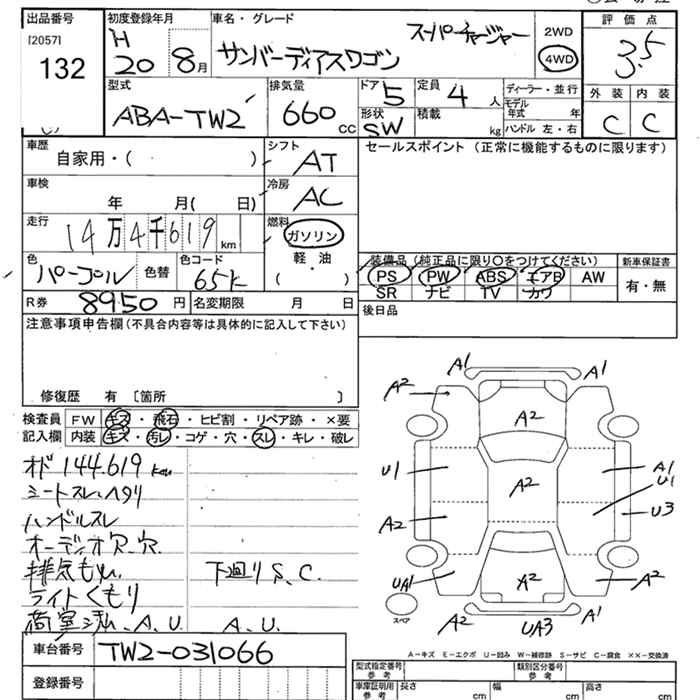 出品番号
[2057]
132
初度登録年月
H
20 8月
車名・グレード
スーパーチャージャー
サンバーディアスワゴン
2WD
4WD
評価点
3.5
外装 内装
C C
型式
ABA-TW2
排気量
660 cc
ドア 5
形状 SW
定員 4 人
積載 kg
ディーラー・並行
モデル年式 年
ハンドル 左・右
車歴
自家用・( )
シフト AT
セールスポイント (正常に機能するものに限ります)
車検
年 月( 日)
冷房 AC
走行
14万4千619 km
燃料
ガソリン
軽・油
( ・ )
色
パープル
色替
色コード
65K
装備品 (純正品に限り〇をつけてください)
PS PW ABS エアB AW
SR ナビ TV カワ
新車保証書
有・無
R券 8950 円
名変期限 月 日
後日品
注意事項申告欄 (不具合内容等は具体的に記入して下さい)
修復歴 有 〔箇所 〕
検査員 FW キズ・飛石・ヒビ割・リペア跡・×要
記入欄 内装 キズ・汚レ・コゲ・穴・スレ・キレ・破レ
オド 144.619 km
シートスレ、ヘタリ
ハンドルスレ
オーディオ穴、穴
排気もれ
下廻りS、C
ライトくもり
A、U
A、U
A1 A1
A2 A2 A2
U1 A2 A1
U1
A2 U3
UA1 A2 A2
A2 UA3 A1
スペア
A-キズ E-エクボ U-凹み W-補修跡 S-サビ C-腐食 ××-交換済
車台番号
TW2-031066
登録番号
型式指定番号 参考
類別区分番号 参考
車庫証明用 参考
長さ cm
幅 cm
高さ cm